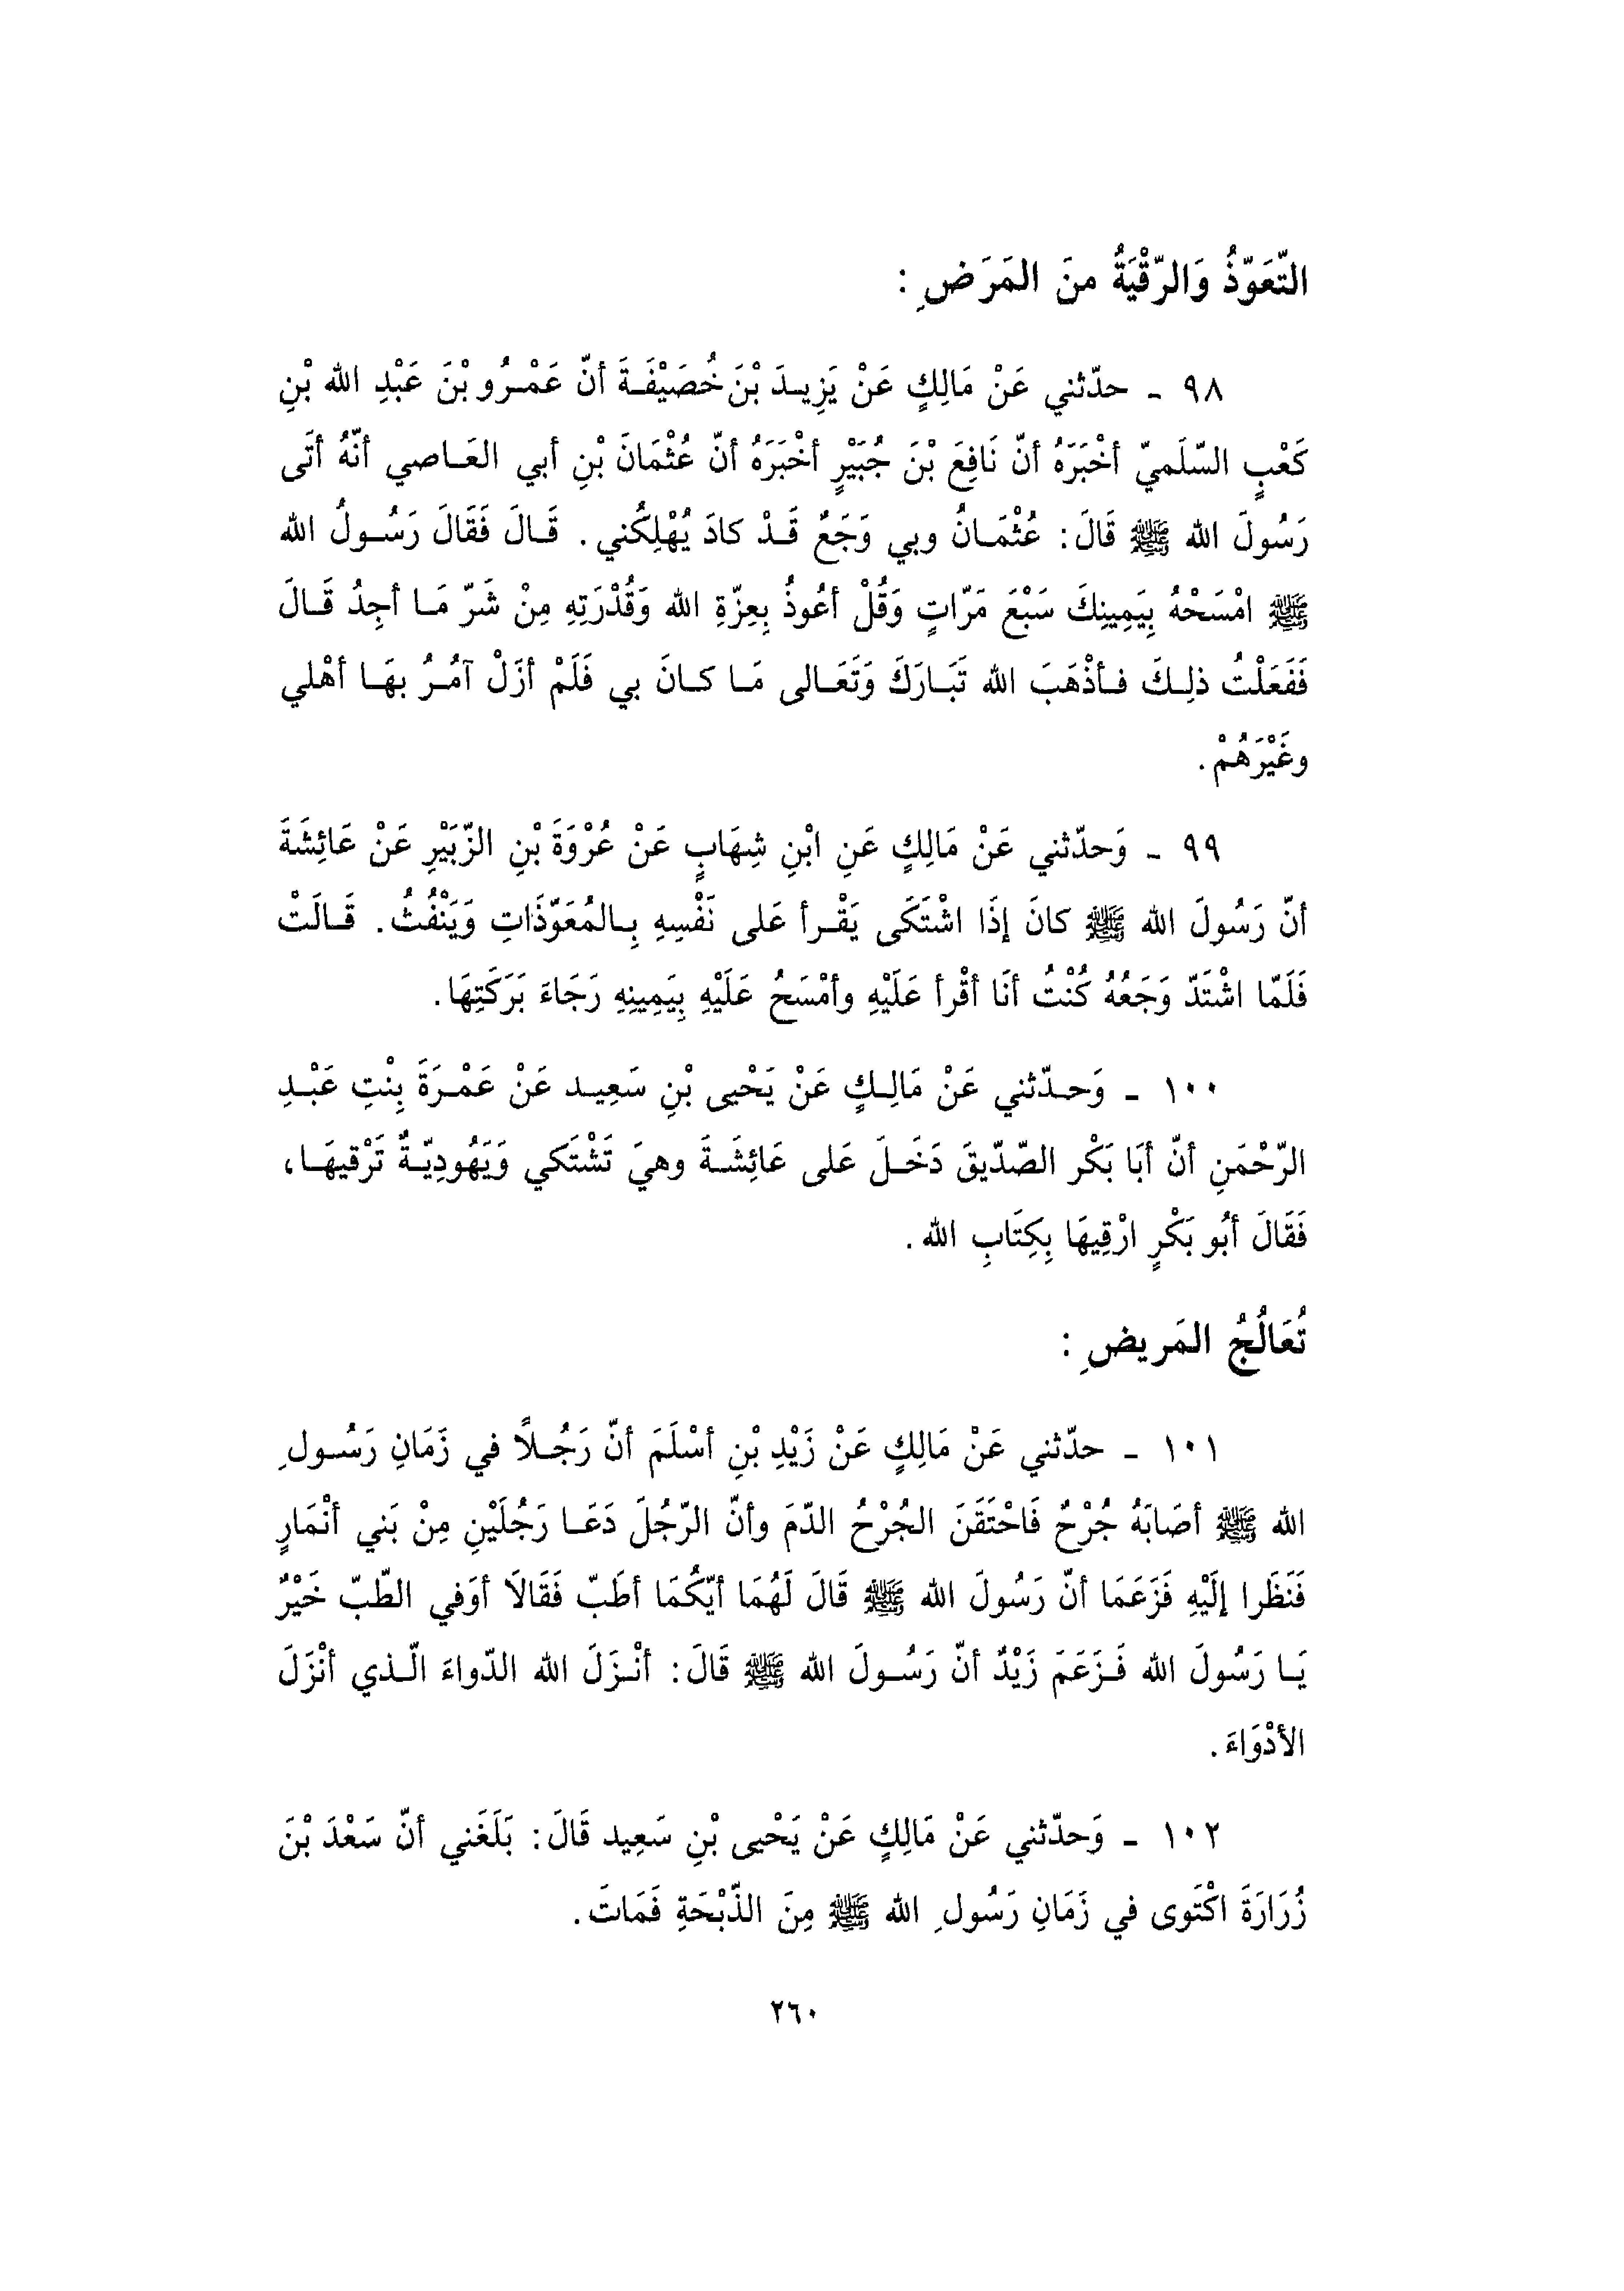 التّعَوّذُ وَالرّقْيَةُ منَ المَرَضِ :
٩٨ ـ حدّثني عَنْ مَالِكٍ عَنْ يَزِيدَ بْنَ خُصَيْفَةَ أنّ عَمْرُو بْنَ عَبْدِ الله بْنِ
كَعْبٍ السّلَميّ أخْبَرَهُ أنّ نَافِعَ بْنَ جُبَيْرٍ أخْبَرَهُ أنّ عُثْمَانَ بْنِ أبي العَاصي أنّهُ أتَى
رَسُولَ الله ﷺ قَالَ: عُثْمَانُ وبي وَجَعٌ قَدْ كادَ يُهْلِكُني. قَالَ فَقَالَ رَسُولُ الله
ﷺ امْسَحْهُ بِيَمِينِكَ سَبْعَ مَرّاتٍ وَقُلْ أعُوذُ بِعِزّةِ الله وَقُدْرَتِهِ مِنْ شَرّ مَا أجِدُ قَالَ
فَفَعَلْتُ ذلِكَ فأذْهَبَ الله تَبَارَكَ وَتَعَالى مَا كانَ بي فَلَمْ أزَلْ آمُرُ بهَا أهْلي
وغَيْرَهُمْ.
٩٩ ـ وَحدّثني عَنْ مَالِكٍ عَنِ ابْنِ شِهَابٍ عَنْ عُرْوَةَ بْنِ الزّبَيْرِ عَنْ عَائِشَةَ
أنّ رَسُولَ الله ﷺ كانَ إذَا اشْتَكَى يَقْرأ عَلى نَفْسِهِ بِالمُعَوّذَاتِ وَيَنْفُثُ. قَالَتْ
فَلَمّا اشْتَدّ وَجَعُهُ كُنْتُ أنَا أقْرأ عَلَيْهِ وأمْسَحُ عَلَيْهِ بِيَمِينِهِ رَجَاءَ بَرَكَتِهَا.
١٠٠ ـ وَحدّثني عَنْ مَالِكٍ عَنْ يَحْيى بْنِ سَعِيد عَنْ عَمْرَةَ بِنْتِ عَبْدِ
الرّحْمَنِ أنّ أبَا بَكْر الصّدّيقَ دَخَلَ عَلى عَائِشَةَ وهيَ تَشْتَكي وَيَهُودِيّةٌ تَرْقيهَا،
فَقَالَ أبُو بَكْرٍ ارْقِيهَا بِكِتَابِ الله.
تُعَالُجُ المَريضِ :
١٠١ ـ حدّثني عَنْ مَالِكٍ عَنْ زَيْدِ بْنِ أسْلَمَ أنّ رَجُلاً في زَمَانِ رَسُولِ
الله ﷺ أصَابَهُ جُرْحٌ فَاحْتَقَنَ الجُرْحُ الدّمَ وأنّ الرّجُلَ دَعَا رَجُلَيْنِ مِنْ بَني أنْمَارٍ
فَنَظَرا إلَيْهِ فَزَعَمَا أنّ رَسُولَ الله ﷺ قَالَ لَهُمَا أيّكُمَا أطَبّ فَقَالَا أوَفي الطّبّ خَيْرٌ
يَا رَسُولَ الله فَزَعَمَ زَيْدٌ أنّ رَسُولَ الله ﷺ قَالَ: أنْزَلَ الله الدّواءَ الّذي أنْزَلَ
الأدْوَاءَ.
١٠٢ ـ وَحدّثني عَنْ مَالِكٍ عَنْ يَحْيى بْنِ سَعِيد قَالَ: بَلَغَني أنّ سَعْدَ بْنَ
زُرَارَةَ اكْتَوى في زَمَانِ رَسُولِ الله ﷺ مِنَ الذّبْحَةِ فَمَاتَ.
٢٦٠